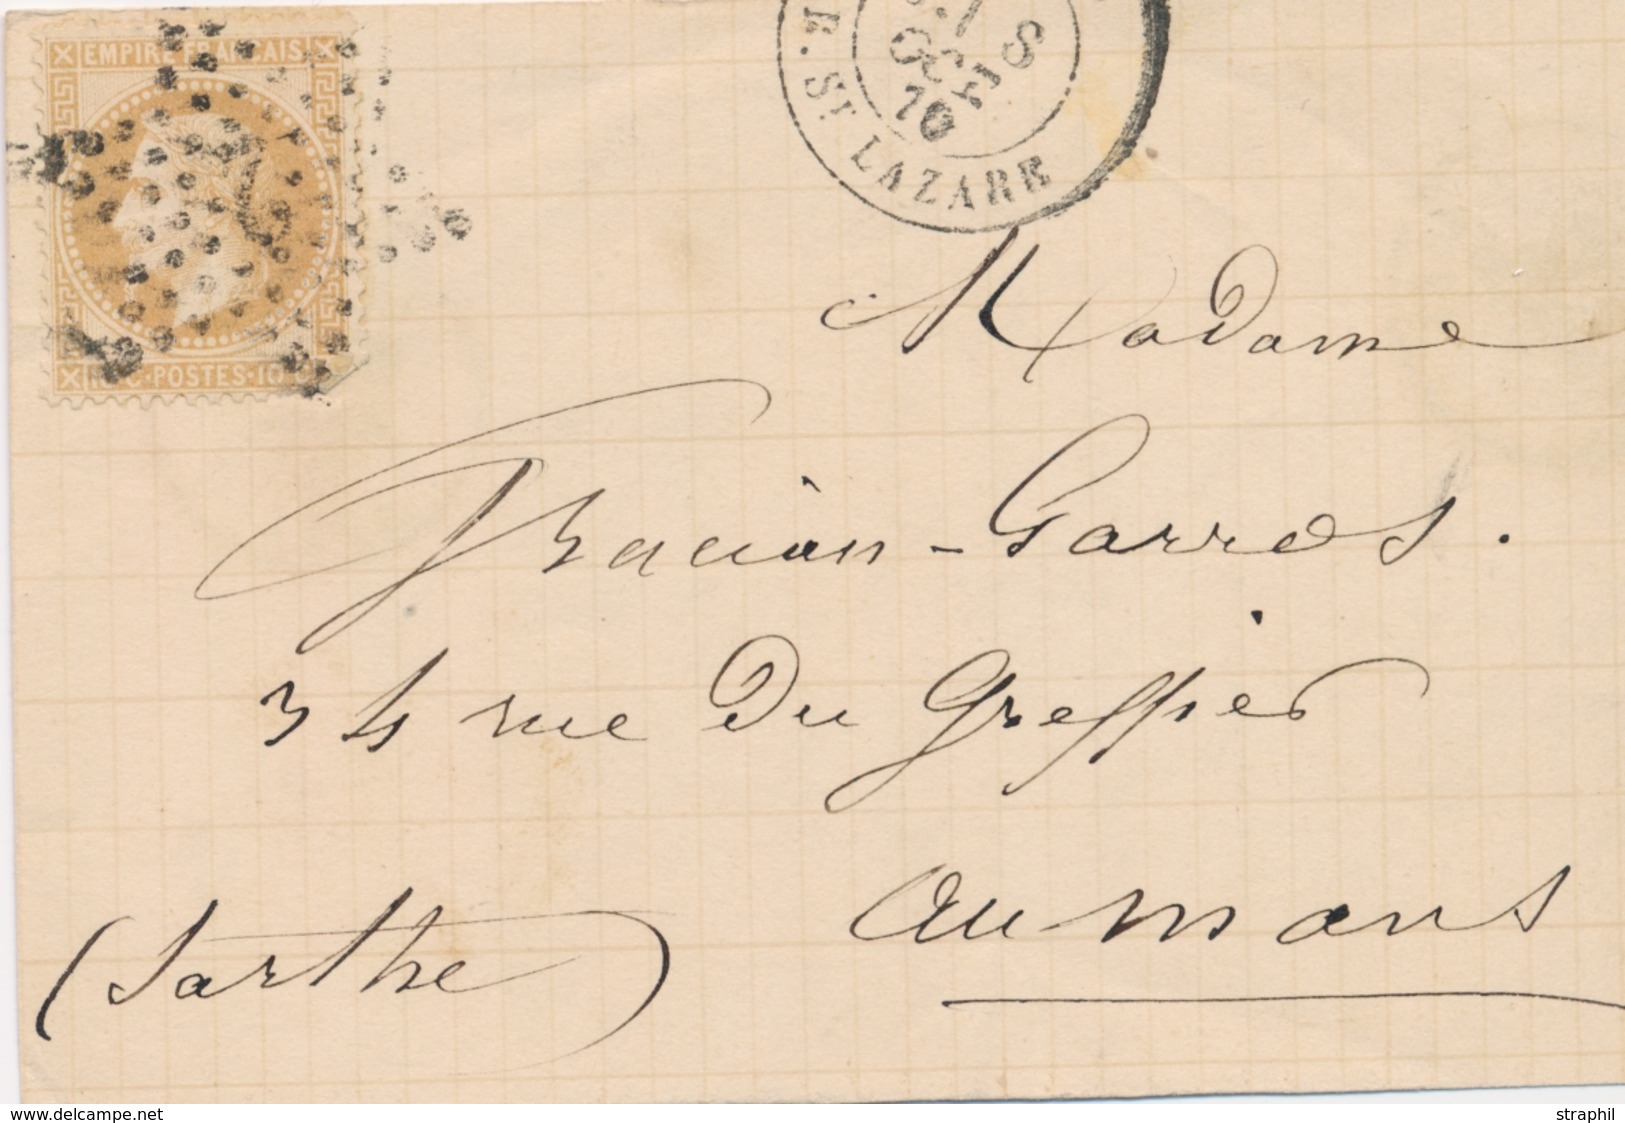 EMPIRE FRANÇAIS
10 C·POSTES·10 C
R. ST LAZARE
8
OCT
70
Madame
Garros.
34 rue du Greffier
au mans
(Sarthe)
www.delcampe.net
straphil